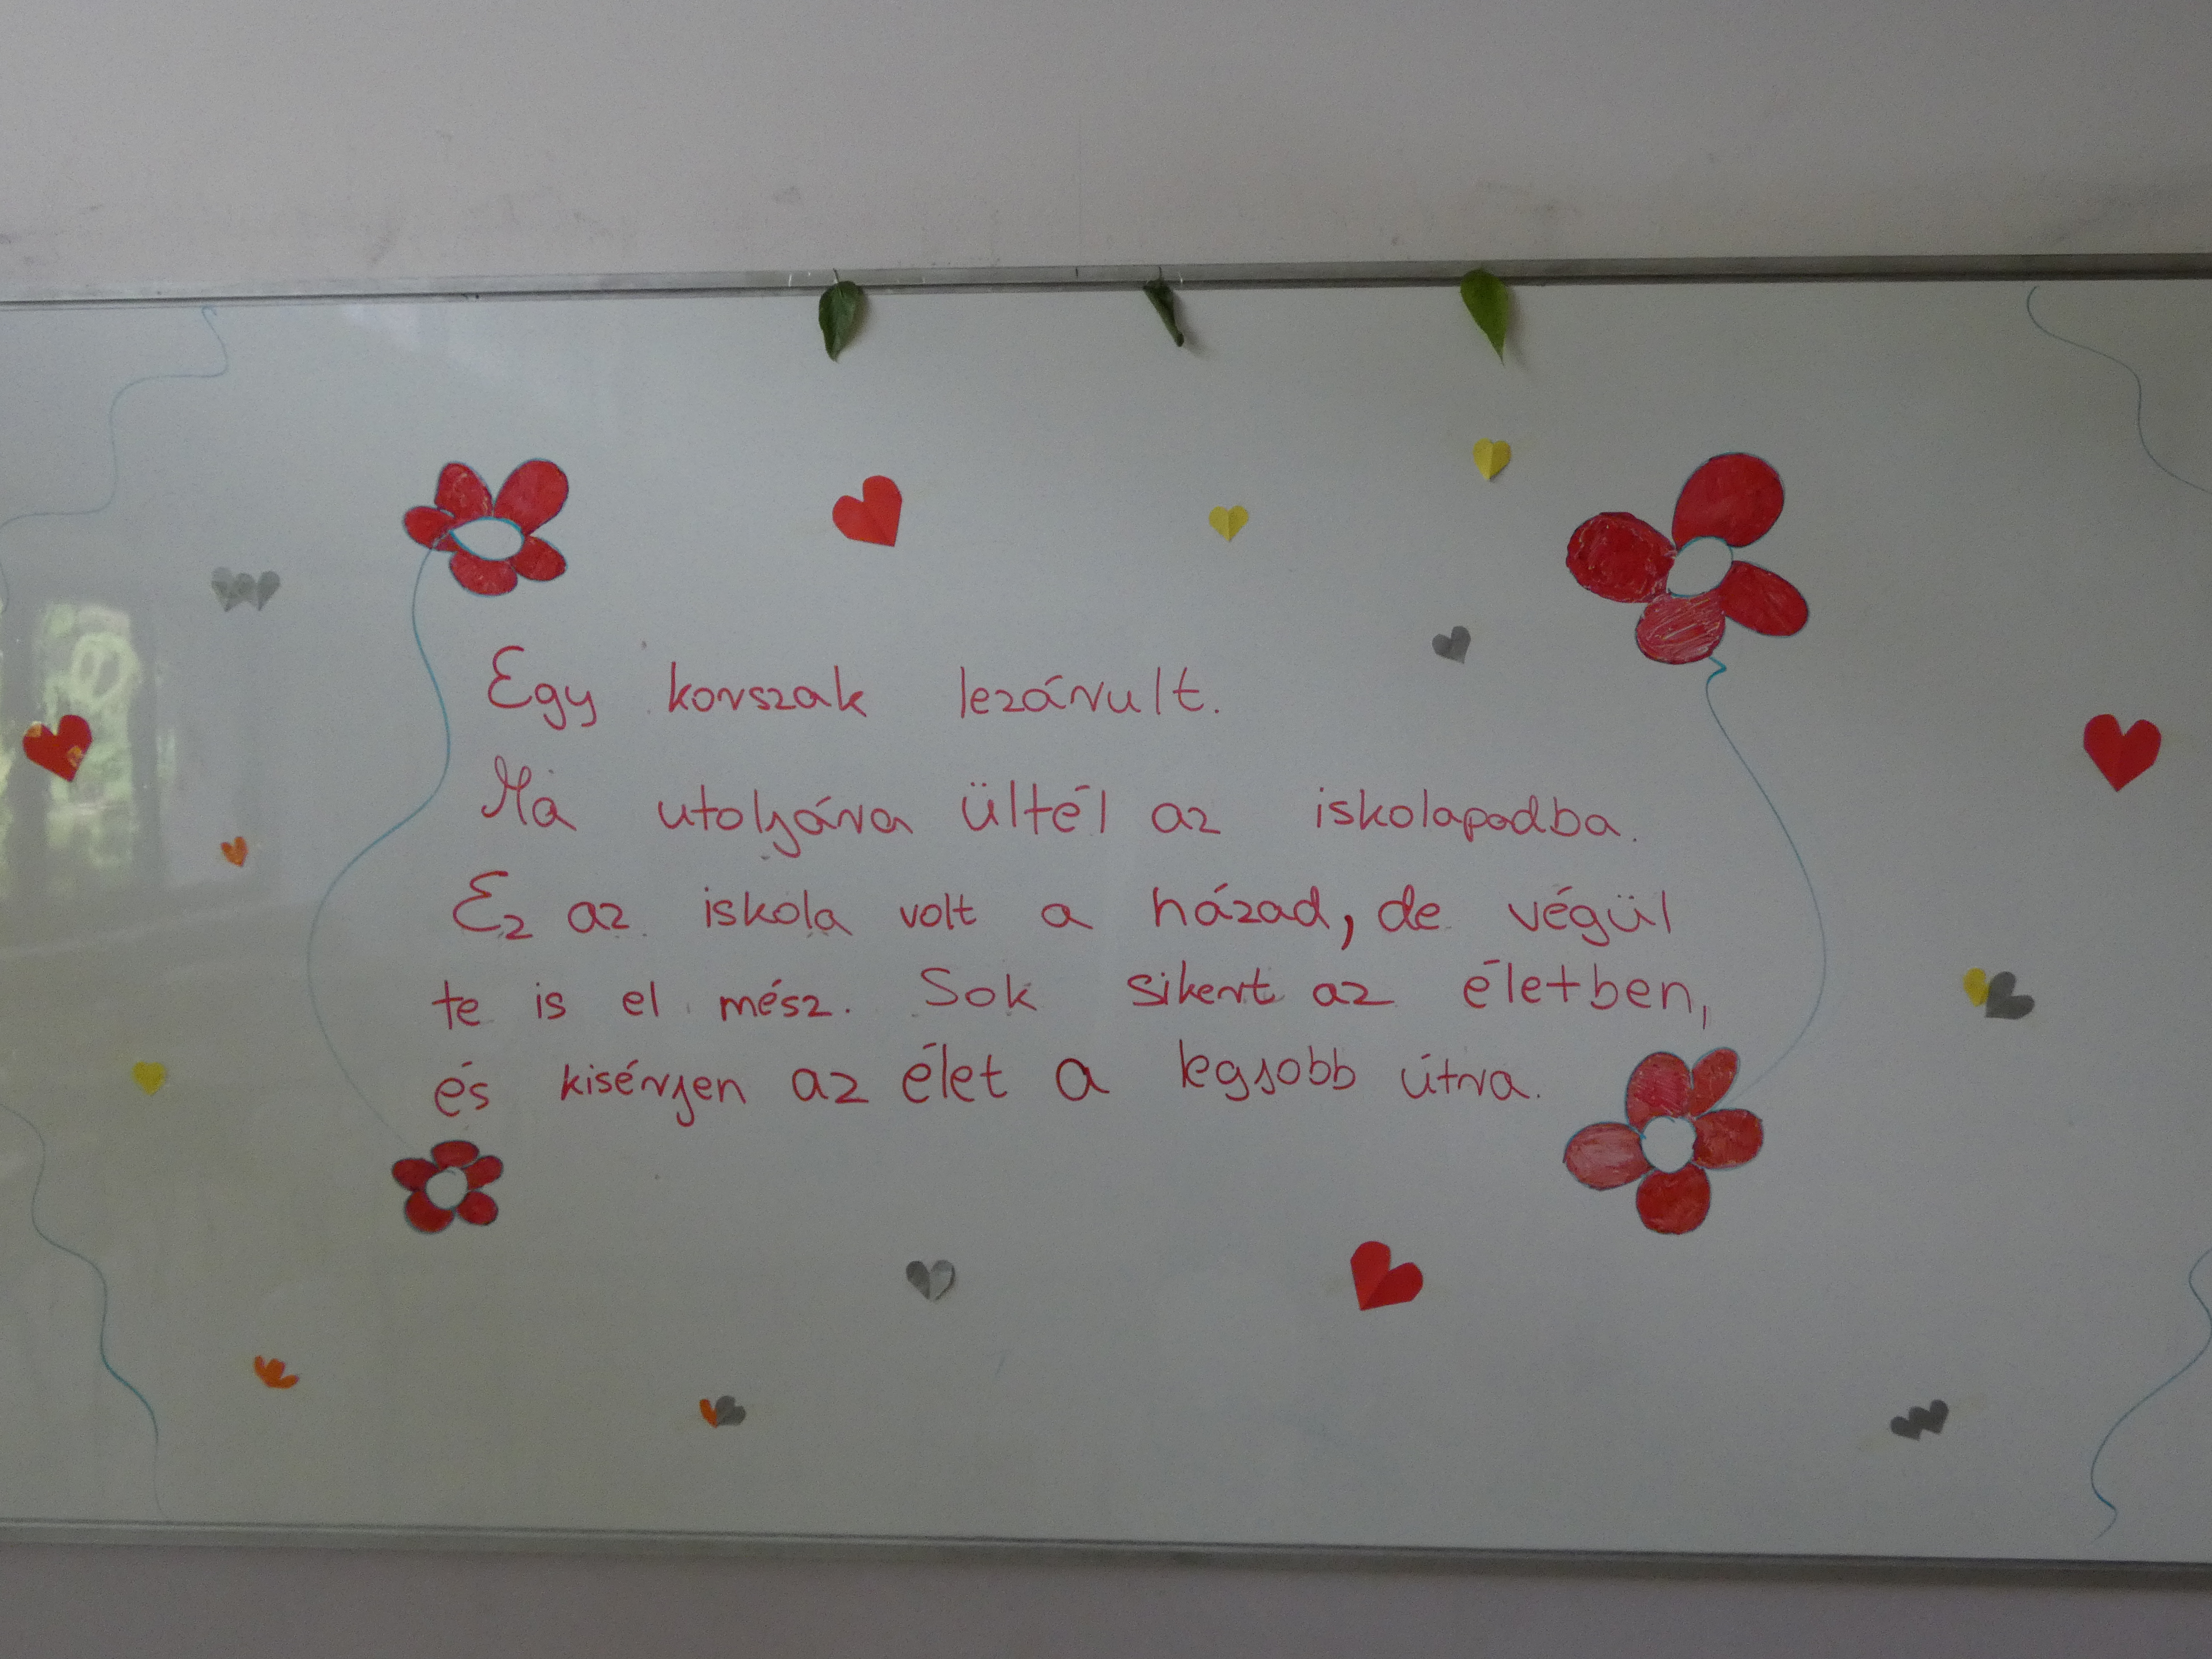 Egy korszak lezárult.
Ma utoljára ültél az iskolapadba.
Ez az iskola volt a házad, de végül
te is el mész. Sok sikert az életben,
és kisérjen az élet a legjobb útra.